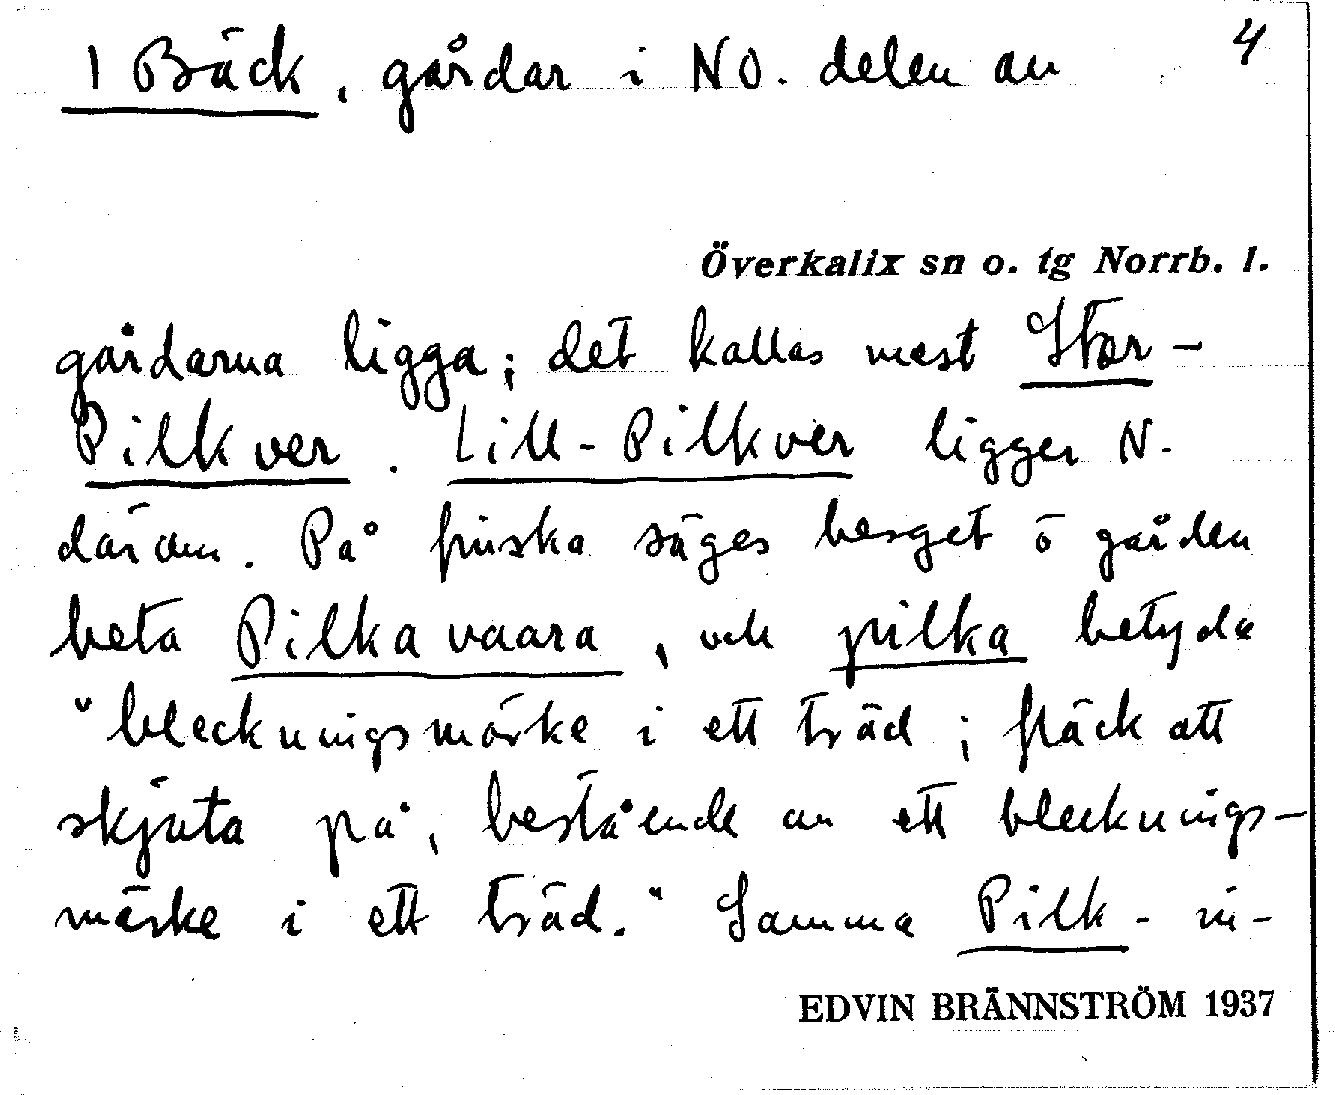 1 Bäck, gårdar i NO. delen av
4
Överkalix sn o. tg Norrb. l.
gårdarna ligga; det kallas mest Stor-
Pilkver. Lill-Pilkver ligger N.
därom. På finska säges berget o gården
heta Pilkavaara, och pilka betyda
"bleckningsmärke i ett träd; fläck att
skjuta på, bestående av ett blecknings-
märke i ett träd." Samma Pilk- in-
EDVIN BRÄNNSTRÖM 1937